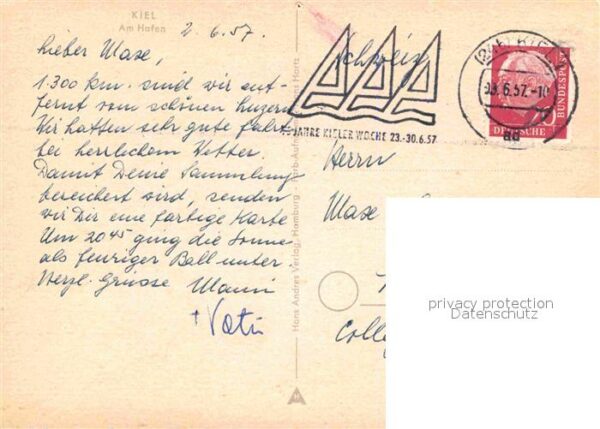 KIEL
Am Hafen
2.6.57.
Lieber Maxe,
1300 km. sind wir ent-
fernt vom schönen Luzern
Wir hatten sehr gute Fahrt
bei herrlichem Wetter.
Damit Deine Sammlung
bereichert wird, senden
wir Dir eine farbige Karte
Um 20 45 ging die Sonne
als feuriger Ball unter.
Herzl. Grüsse Mami
+ Vati
Hans Andres Verlag, Hamburg
Schweiz
JAHRE KIELER WOCHE 23.-30.6.57
03.6.57.-10
DEUTSCHE BUNDESPOST
Herrn
Maxe
privacy protection
Datenschutz